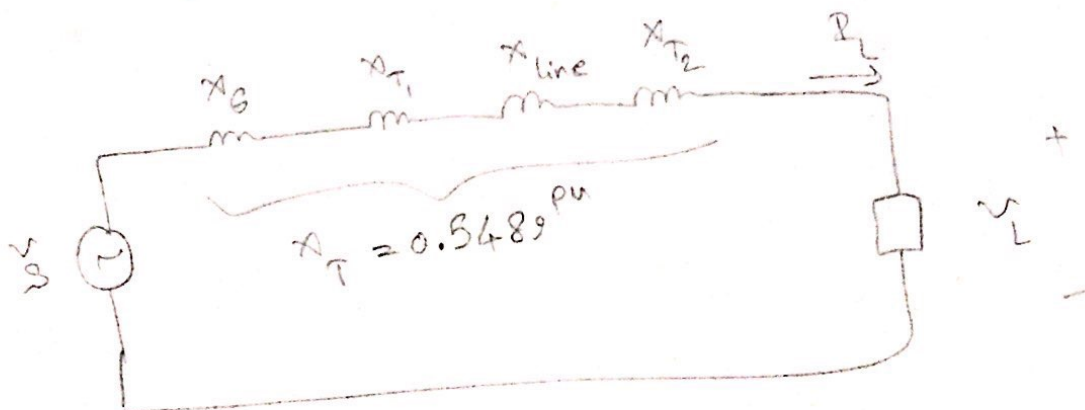 X_G X_T₁ X_line X_T₂ I_L
X_T = 0.5489 pu
V_g ~
V_L
+
-